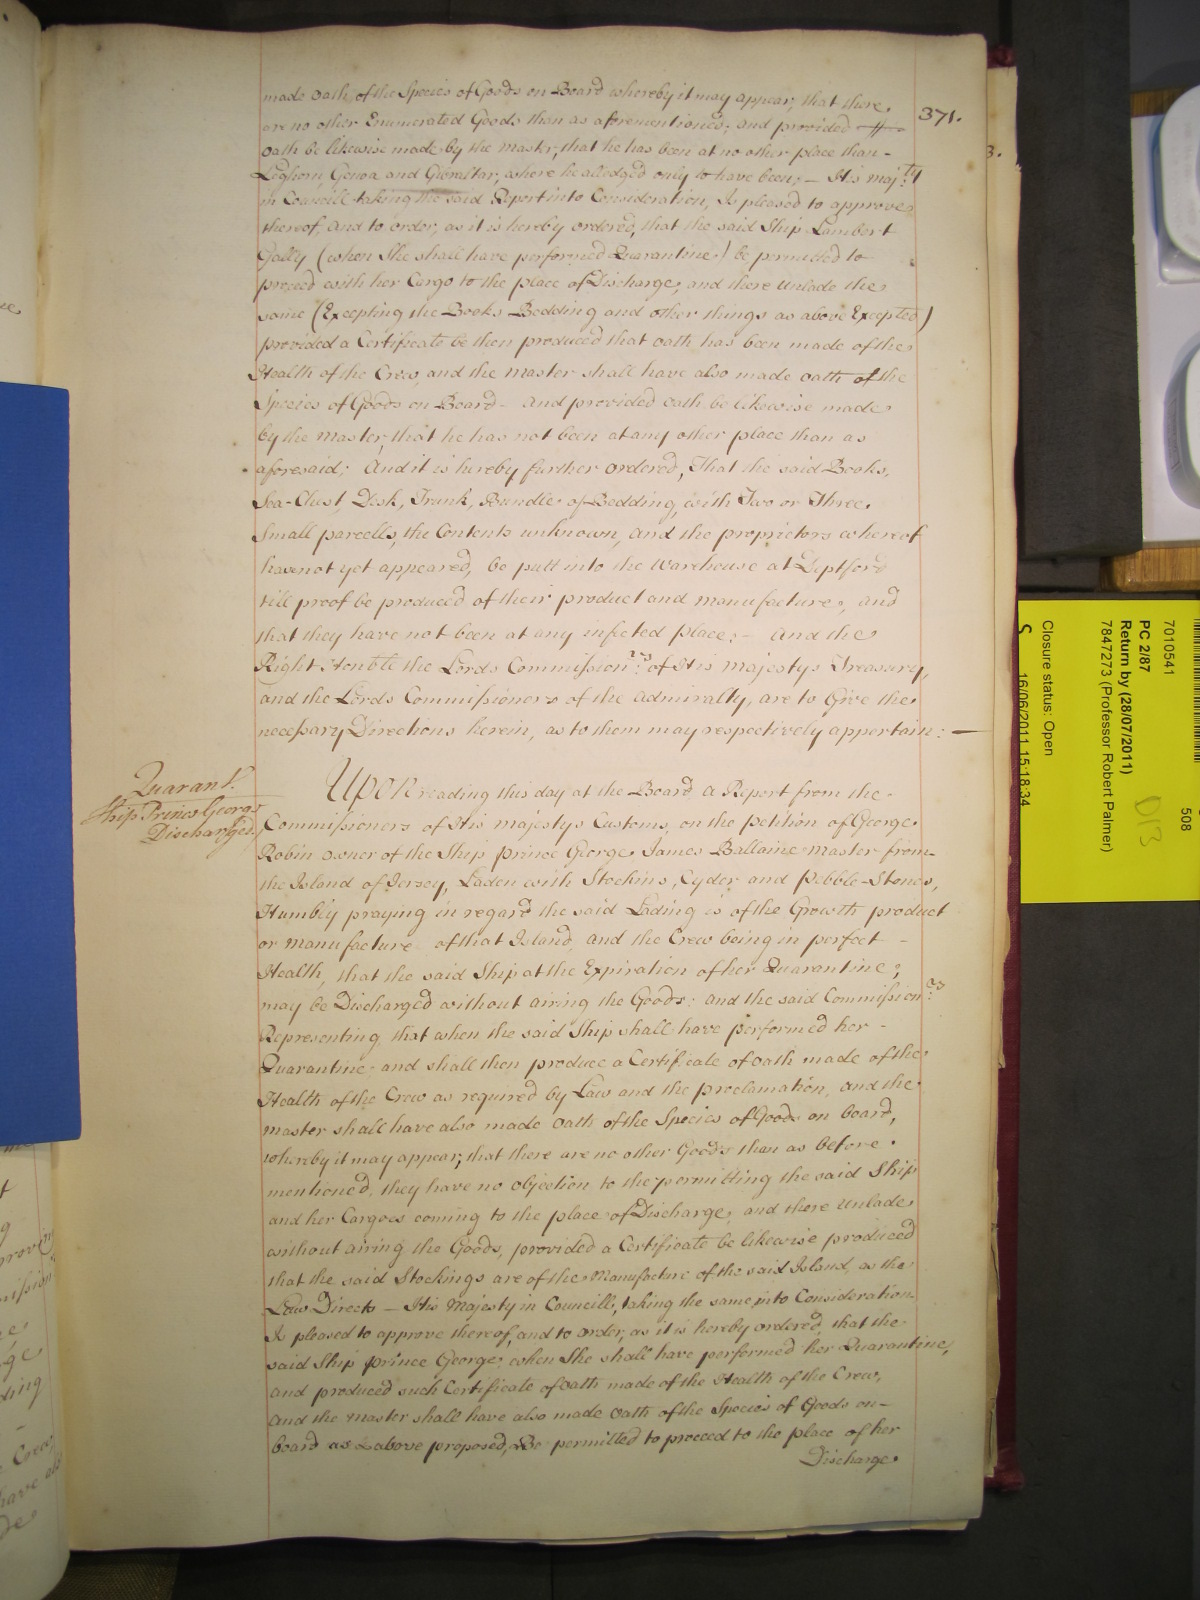 371.
3.
made oath of the Species of Goods on Board whereby it may appear; that there
are no other Enumerated Goods than as aforementioned; and provided
oath be likewise made by the master, that he has been at no other place than -
Leghorn, Genoa and Gibraltar, where he alledged only to have been; - His Maj:ty
in Councill taking the said Report into Consideration, Is pleased to approve
thereof, and to order, as it is hereby ordered, that the said Ship Lambert
Gally (when She shall have performed Quarantine) be permitted to
proceed with her Cargo to the place of Discharge, and there unlade the
same (Excepting the Books Bedding and other things as above Excepted)
provided a Certificate be then produced that oath has been made of the
Health of the Crew, and the master shall have also made oath of the
Species of Goods on Board - and provided oath be likewise made
by the master, that he has not been at any other place than as
aforesaid; And it is hereby further ordered, That the said Books,
Sea-Chest, Desk, Trunk, Bundle of Bedding, with Two or Three
Small parcells, the Contents unknown, and the proprietors whereof
have not yet appeared, be putt into the Warehouse at Deptford
till proof be produced of their product and manufacture, and
that they have not been at any infected place; - And the
Right Honble the Lords Commission:rs of His majestys Treasury,
and the Lords Commissioners of the Admiralty, are to Give the
necessary Directions herein, as to them may respectively appertain: -
Quarant:
Ship Prince George
Discharged.
Upon reading this day at the Board a Report from the -
Commissioners of His majestys Customs, on the petition of George
Robin owner of the Ship prince George James Ballaine master from
the Island of Jersey, Laden with Stockins, Cyder and Pebble-Stones,
Humbly praying in regard the said Lading is of the Growth product
or manufacture of that Island, and the Crew being in perfect -
Health, that the said Ship at the Expiration of her Quarantine,
may be Discharged without airing the Goods: and the said Commission:rs
Representing, that when the said Ship shall have performed her -
Quarantine, and shall then produce a Certificate of oath made of the
Health of the Crew as required by Law and the proclamation, and the
master shall have also made oath of the Species of Goods on board,
whereby it may appear; that there are no other Goods than as before
mentioned, they have no objection to the permitting the said Ship
and her Cargoes coming to the place of Discharge, and there unlade
without airing the Goods, provided a Certificate be likewise produced
that the said Stockings are of the Manufacture of the said Island, as the
Law Directs - His Majesty in Councill, taking the same into Consideration
Is pleased to approve thereof, and to order, as it is hereby ordered, that the
said Ship prince George, when She shall have performed her Quarantine,
and produced such Certificate of oath made of the Health of the Crew,
and the master shall have also made oath of the Species of Goods on -
board as above proposed, Be permitted to proceed to the place of her
Discharge
508
7010541
PC 2/87
Return by (28/07/2011)
7847273 (Professor Robert Palmer)
D13
Closure status: Open
16/06/2011 15:18:34
S